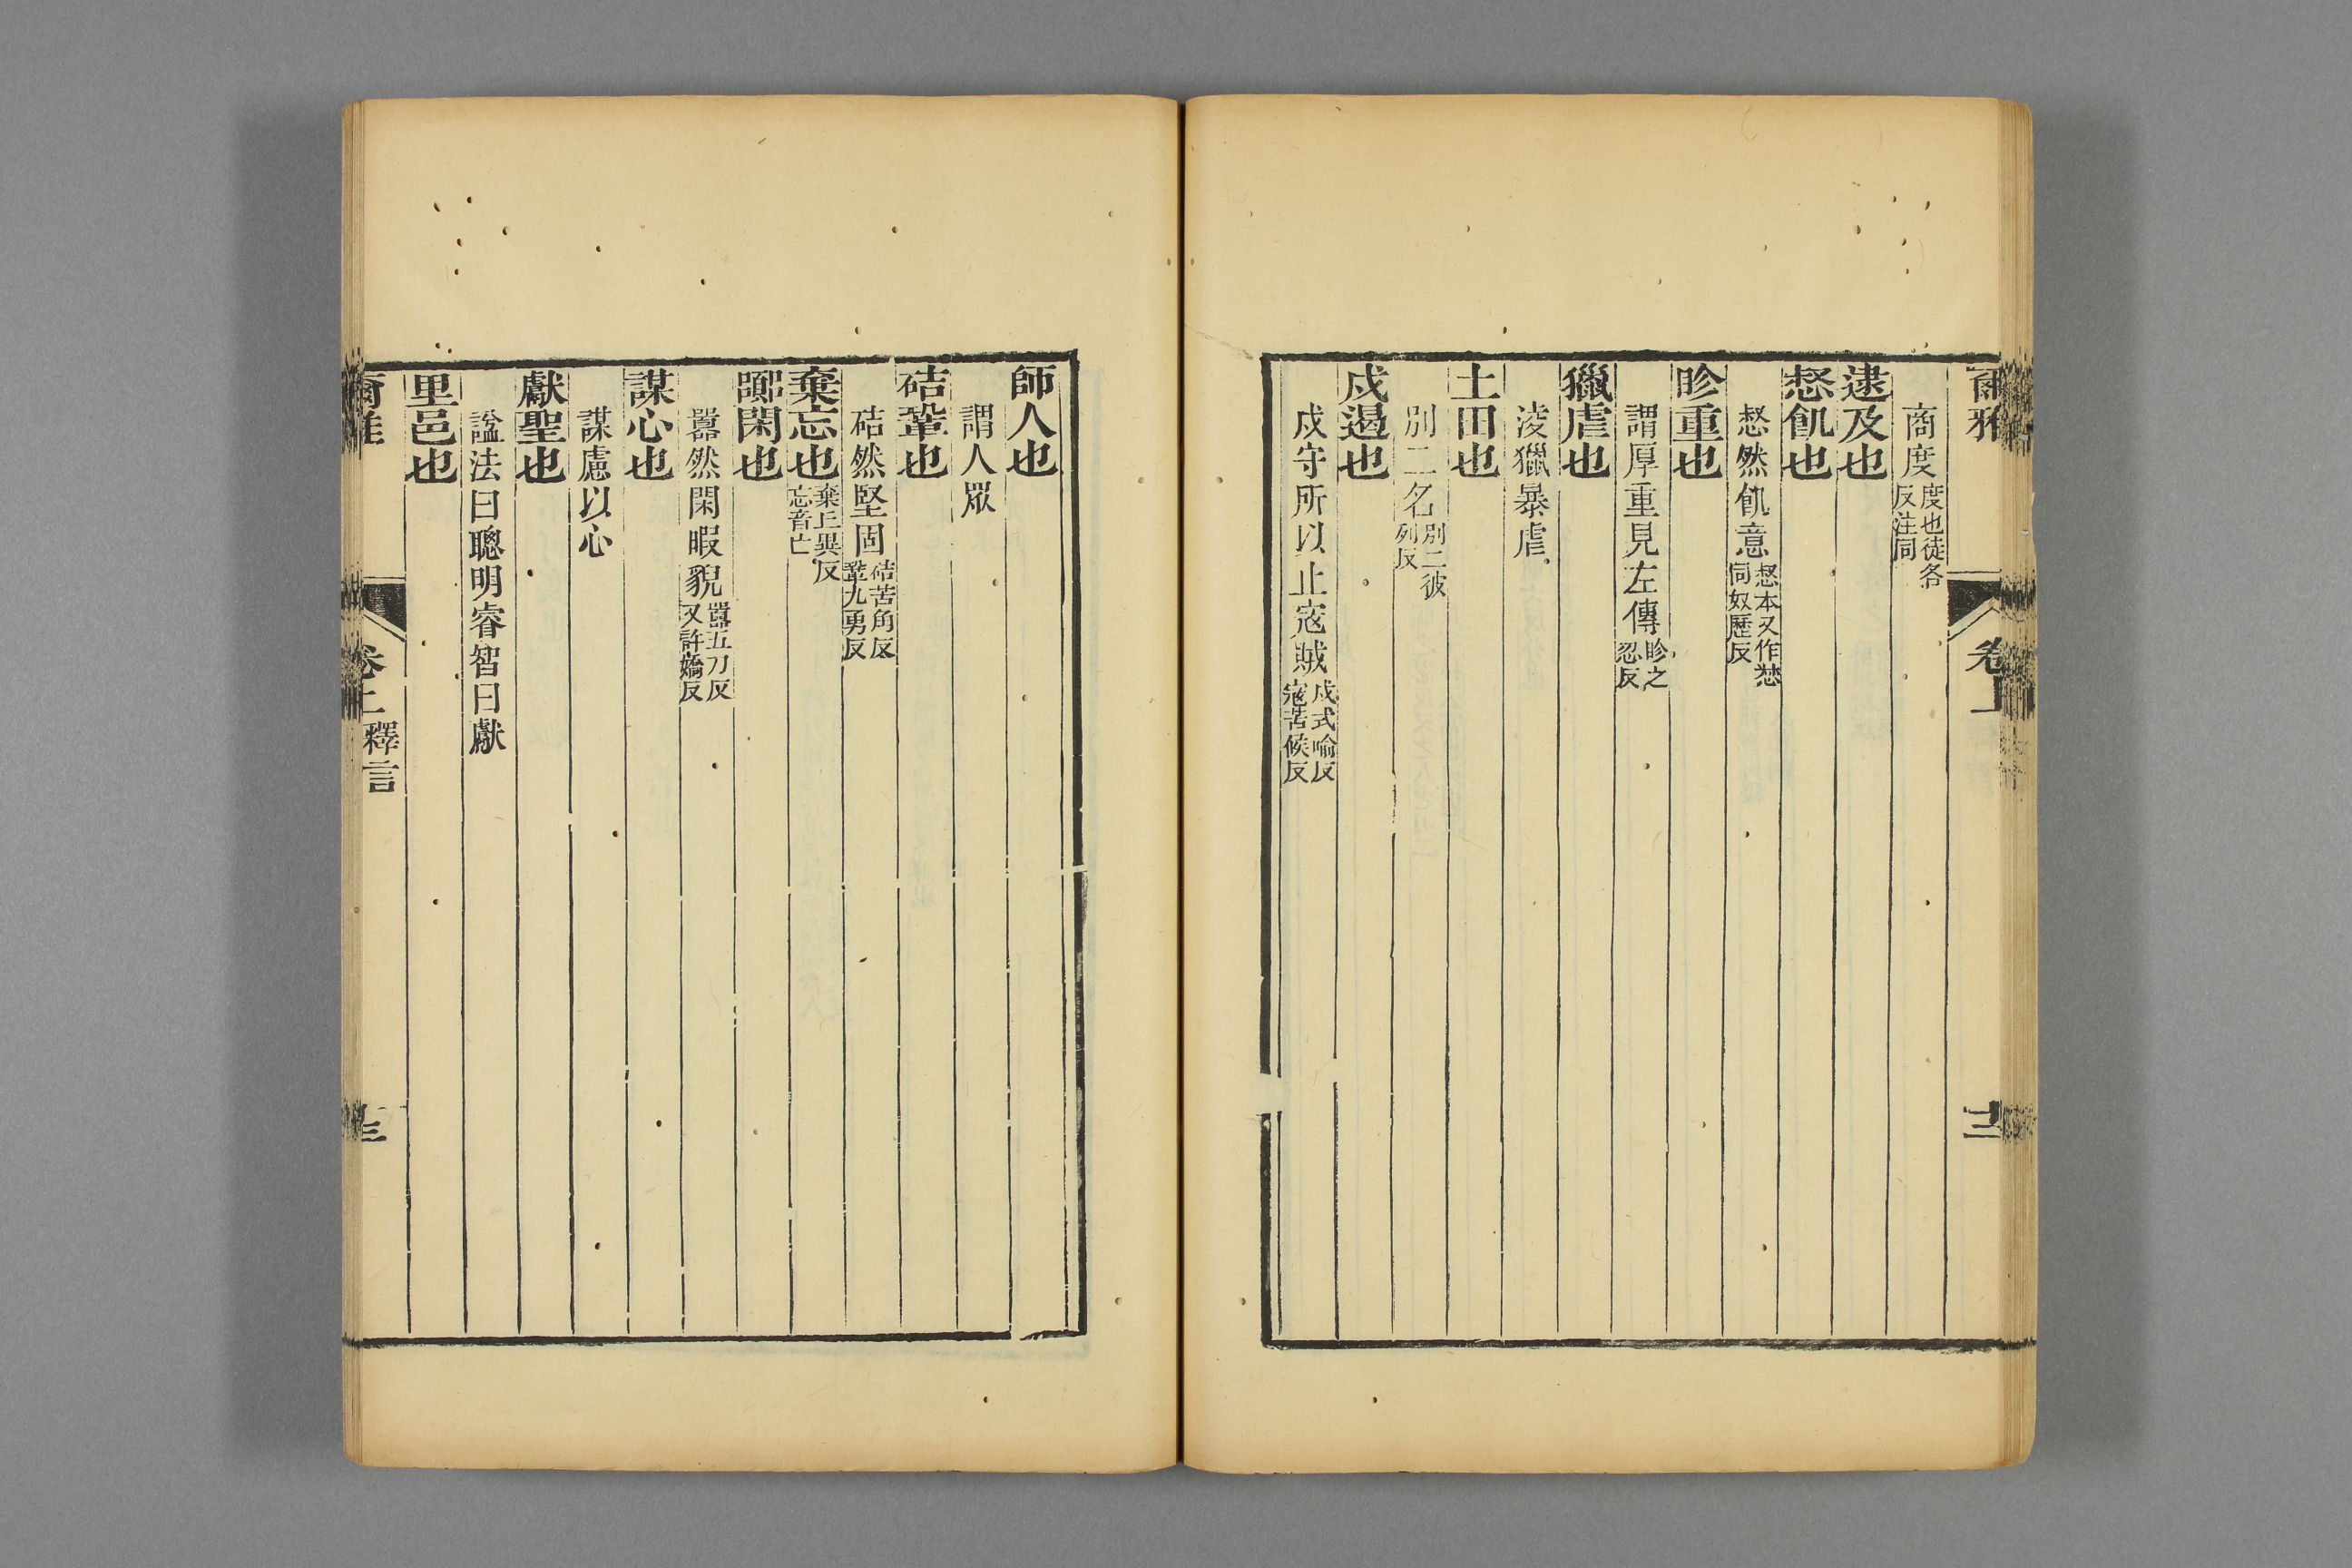 爾雅 卷上 十二
商度度也徒各反注同
逮及也
惄飢也
惄然飢意惄本又作愵同奴歷反
眕重也
謂厚重見左傳眕之忍反
獵虐也
淩獵暴虐
土田也
別二名別二彼列反
戍遏也
戍守所以止寇賊戍式喻反寇苦候反
師人也
謂人眾
硈鞏也
硈然堅固硈苦角反鞏九勇反
棄忘也棄丘異反忘音亡
嚻閑也
嚻然閑暇貌嚻五刀反又許嬌反
謀心也
謀慮以心
獻聖也
謚法曰聰明睿智曰獻
里邑也
爾雅 卷上 釋言 十三